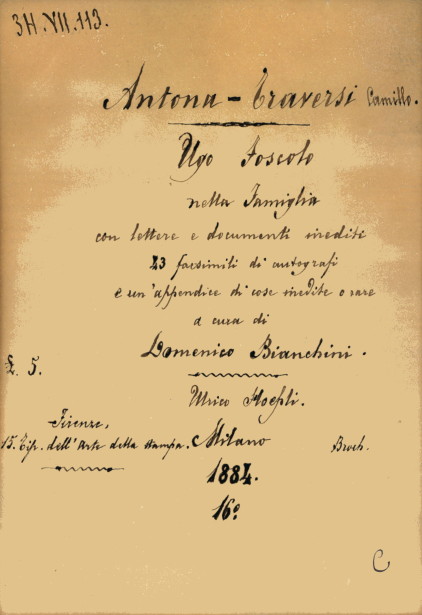 3H.VII.113.
Antona-Traversi Camillo.
Ugo Foscolo
nella Famiglia
con lettere e documenti inedite
23 facsimili di autografi
e un'appendice di cose inedite o rare
a cura di
Domenico Bianchini.
£. 5.
Ulrico Hoepli.
Firenze,
15. Tip. dell'Arte della stampa. Milano Broch.
1884.
16º
C